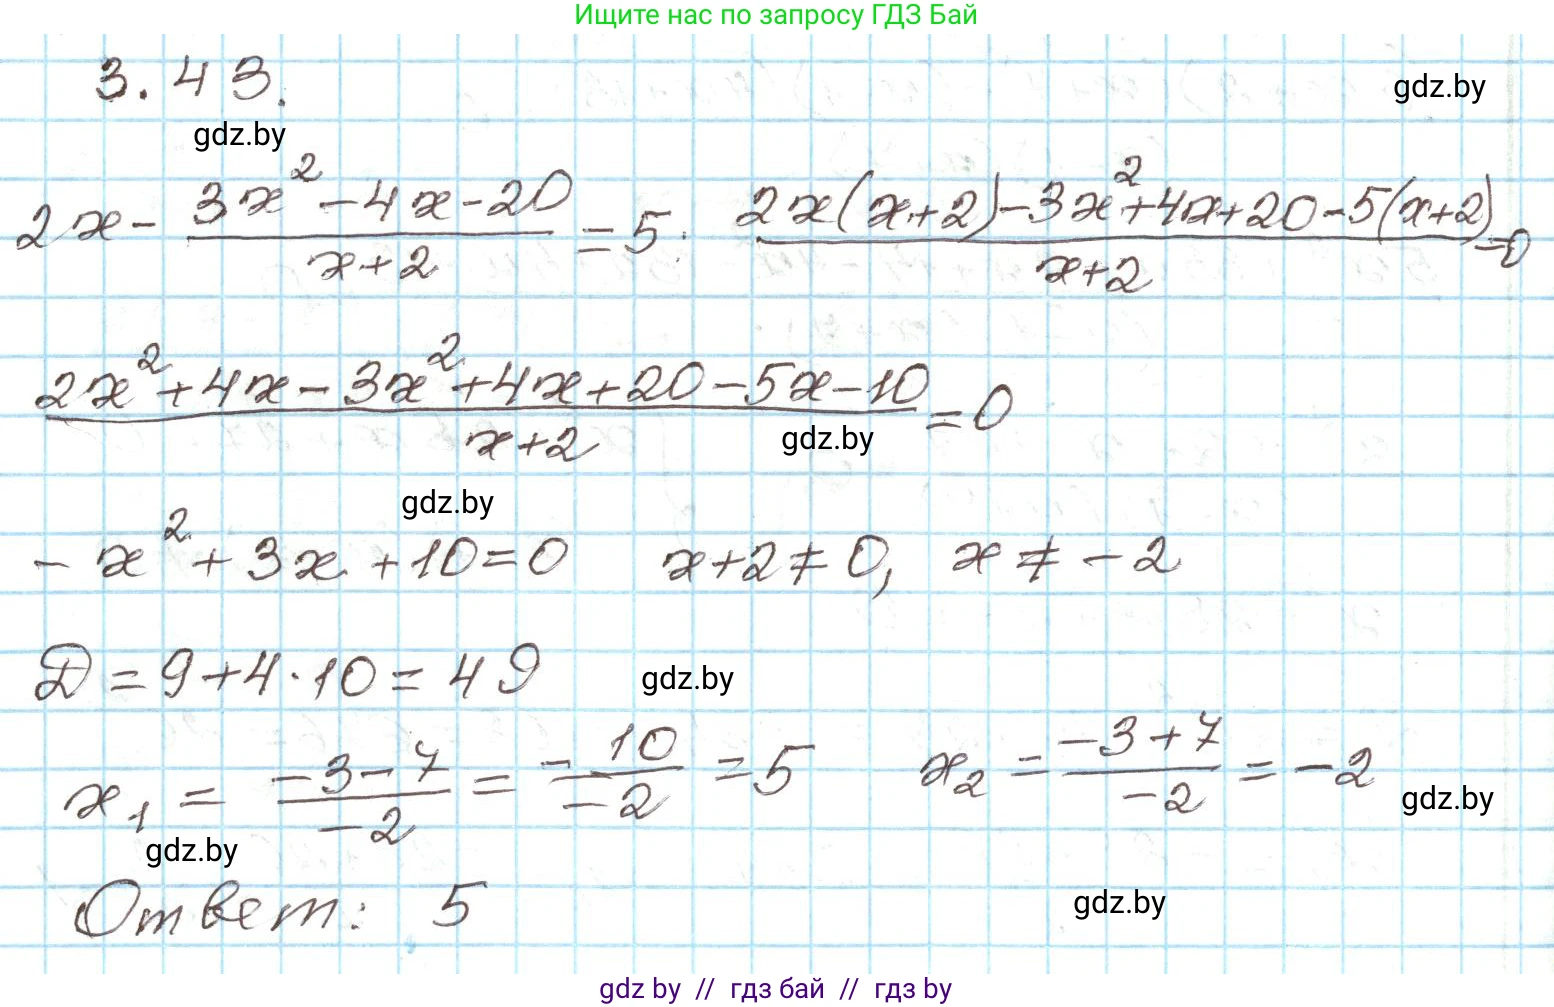 Ищите нас по запросу ГДЗ Бай
3.43.
gdz.by
gdz.by
2x - (3x² - 4x - 20)/(x+2) = 5; (2x(x+2) - 3x² + 4x + 20 - 5(x+2))/(x+2) = 0
(2x² + 4x - 3x² + 4x + 20 - 5x - 10)/(x+2) = 0
gdz.by
gdz.by
-x² + 3x + 10 = 0 x+2 ≠ 0, x ≠ -2
D = 9 + 4·10 = 49
gdz.by
x₁ = (-3-7)/(-2) = (-10)/(-2) = 5 x₂ = (-3+7)/(-2) = -2
gdz.by
gdz.by
Ответ: 5
gdz.by
gdz by // гдз бай // гдз by